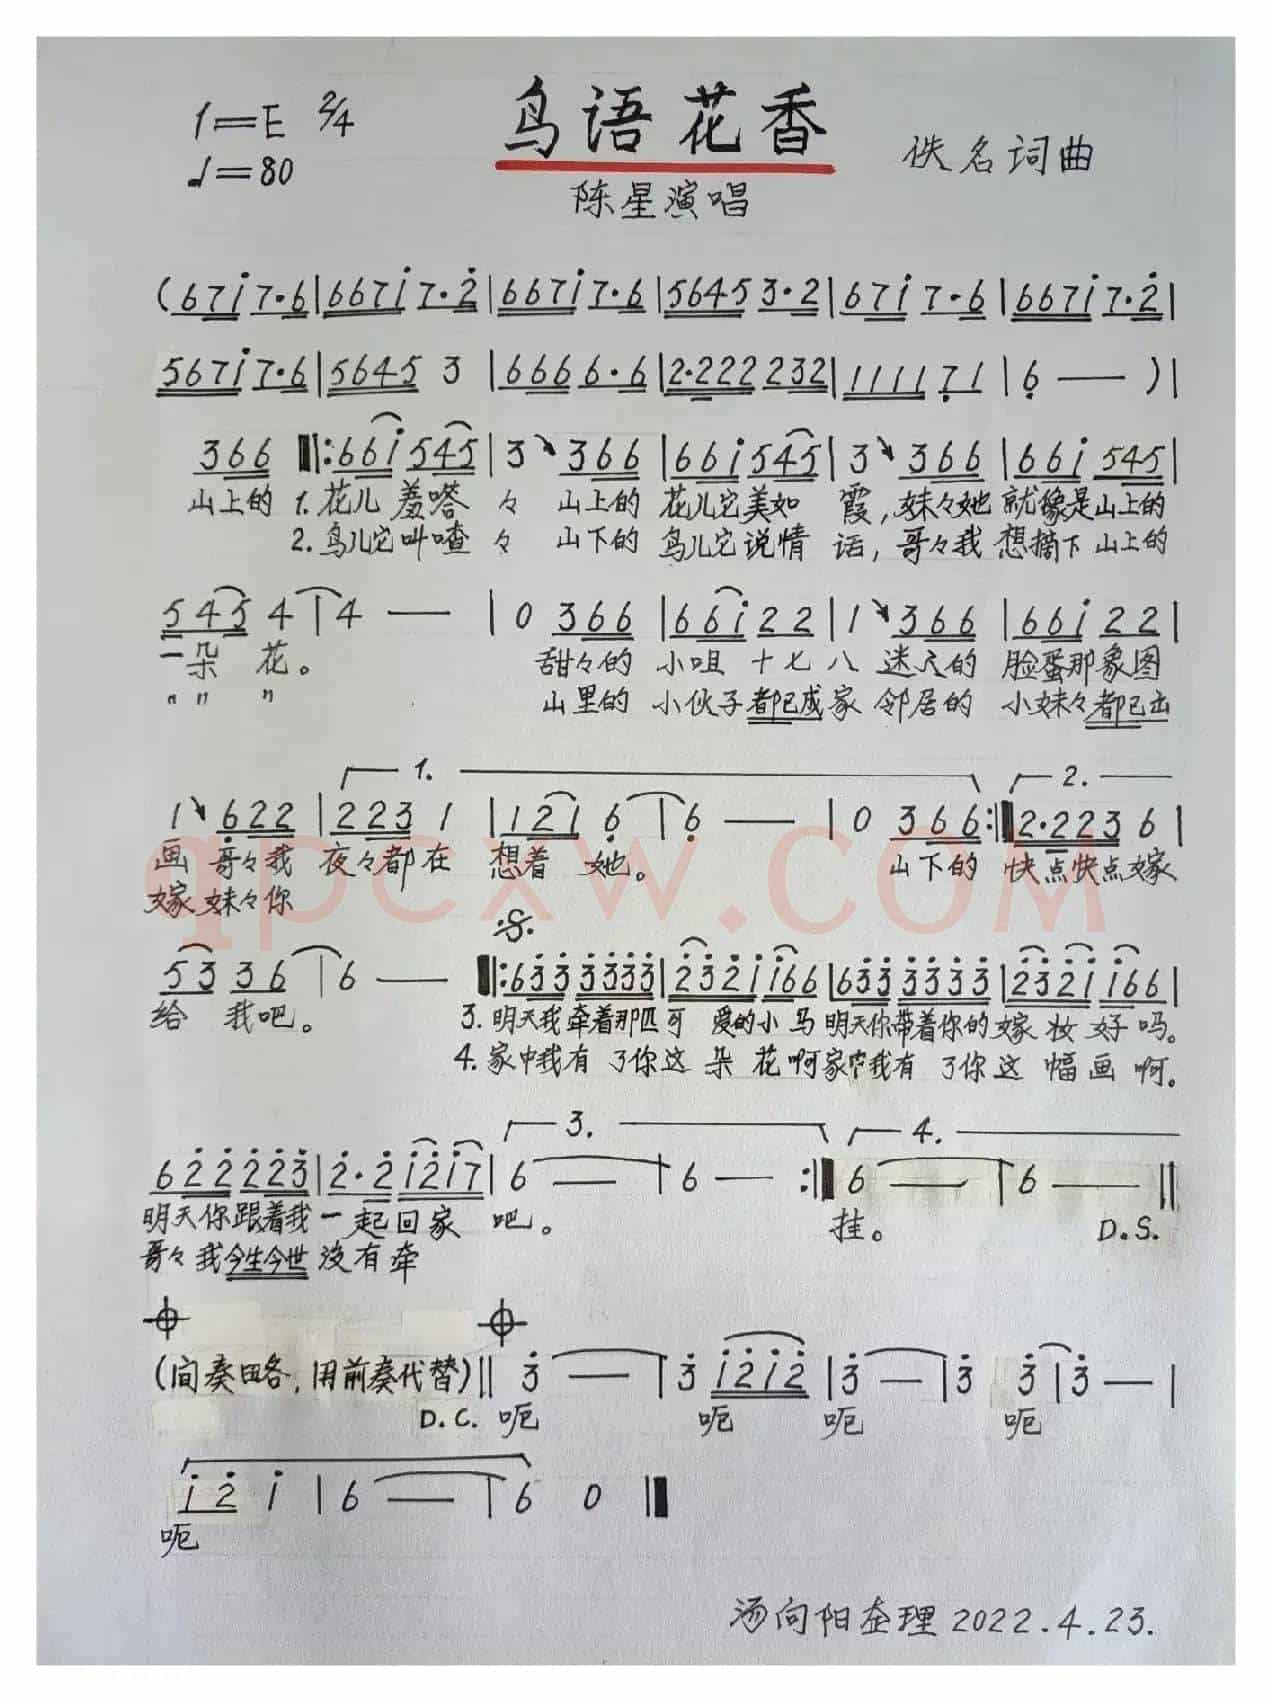 1=E 2/4 鸟语花香 佚名词曲
♩=80 陈星演唱
(67i7·6|667i7·2|667i7·6|56453·2|67i7·6|667i7·2|
567i7·6|5645 3|6666·6|2·222232|111171|6 — )|
366 ‖:66i545|3 366|66i545|3 366|66i545|
山上的 1.花儿羞嗒々 山上的 花儿它美如霞,妹々她就像是山上的
2.鸟儿它叫喳々 山下的 鸟儿它说情话,哥々我想摘下山上的
545 4|4 — |0 366|66i22|1 366|66i22|
一朵花。 甜々的 小咀十七八 迷人的 脸蛋那象图
〃 〃 〃 山里的 小伙子都已成家 邻居的 小妹々都已出
1. 2.
1 622|223 1|121 6|6 — |0 366:‖2·223 6|
画 哥々我 夜々都在 想着她。 山下的 快点快点嫁
嫁妹々你
53 36|6 — ‖:633 3333|2321 i66|633 3333|2321 i66|
给我吧。 3.明天我牵着那匹可爱的小马明天你带着你的嫁妆好吗。
4.家中我有了你这朵花啊家中我有了你这幅画啊。
3. 4.
622 223|2·2 i2i7|6 — |6 — :‖6 — |6 — ‖
明天你跟着我一起回家吧。 挂。 D.S.
哥々我今生今世没有牵
(间奏略,用前奏代替)‖3 — |3 i2i2|3 — |3 3|3 — |
D.C. 呃 呃 呃 呃
i2 i|6 — |6 0‖
呃
汤向阳整理2022.4.23.
qpcxw.com